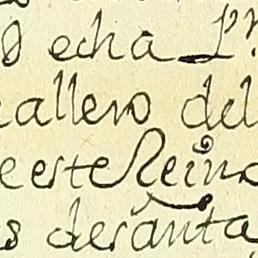 echa
allero del
este Reino
s de santa